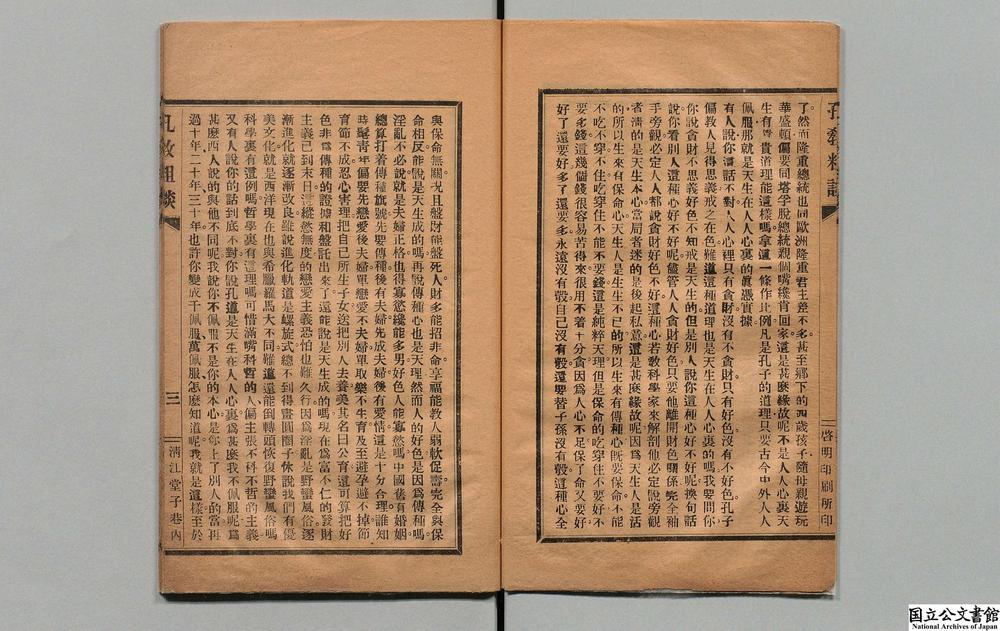 了然而隆重總統也同歐洲隆重君主差不多甚至鄉下的四歲孩子隨母親遊玩
華盛頓偏要同塔孛脫總統親個嘴纔肯回家這是甚麼緣故呢不是人人心裏天
生有尊貴道理能這樣嗎拿這一條作比例凡是孔子的道理只要古今中外人人
佩服那就是天生在人人心裏的眞憑實據
有人說你這話不對人人心裡只有貪財沒有不貪財只有好色沒有不好色孔子
偏教人見得思義戒之在色難道這種道理也是天生在人人心裏的嗎我要問你
你說貪財不思義好色不知戒是天生的但是別人說你這種心好不好呢換句話
說你看別人這種心好不好呢儘管人人貪財好色只要他離開財色關係完全袖
手旁觀必定人人都說貪財好色不好這種心若教科學家來解剖他必定說旁觀
者清的是天生本心當局者迷的是後起私意這是甚麼緣故呢因爲天生人是活
的所以生來有保命心天生人是生生不已的所以生來有傳種心既要保命不能
不吃不穿不住吃穿住不能不要錢這是純粹天理但是保命的吃穿住不要好不
要多錢這幾個錢很容易苦得來很用不着十分貪因爲人心不足保了命又要好
好了還要好多了還要多永遠沒有彀自己沒有彀還要替子孫沒有彀這種心全
啓明印刷所印
與保命無關況且盤財能盤死人財多能招非命享福能教人弱軟促壽完全與保
命相反能說是天生成的嗎再說傳種心也是天理然而人的好色是因爲傳種嗎
淫亂不必說就是夫婦正格也得寡慾纔能多男好色人能寡慾嗎中國舊有婚姻
總算打着傳種旗號先要傳種後有夫婦先成夫婦後有愛情這是十分合理誰知
時髦靑年偏要先戀愛後夫婦單戀愛不夫婦單取樂不生育及至避孕避不掉節
育節不成忍心害理把自己所生子女送把別人去養美其名曰公育這可算把好
色非爲傳種的證據和盤託出來了還能說是天生成的嗎現在爲富不仁的發財
主義已到末日這縱慾無度的戀愛主義恐怕也難久行因爲淫亂是野蠻風俗逐
漸進化就逐漸改良雖說進化軌道是螺旋式總不到得畫圓圈子休說我們有優
美文化就是西洋現在也與希臘羅馬大不同難道還能倒轉頭恢復野蠻風俗嗎
科學裏有這例嗎哲學裏有這理嗎可惜滿嘴科哲的人偏主張不科不哲的主義
又有人說你的話到底不對你說孔道是天生在人人心裏爲甚麼我不佩服呢爲
甚麼西人說的與他不同呢我說你不佩服不是你的本心是你上了別人的當再
過十年二十年三十年也許你變成千佩服萬佩服怎麼知道呢我就是這樣至於
三
清江堂子巷內
国立公文書館
National Archives of Japan